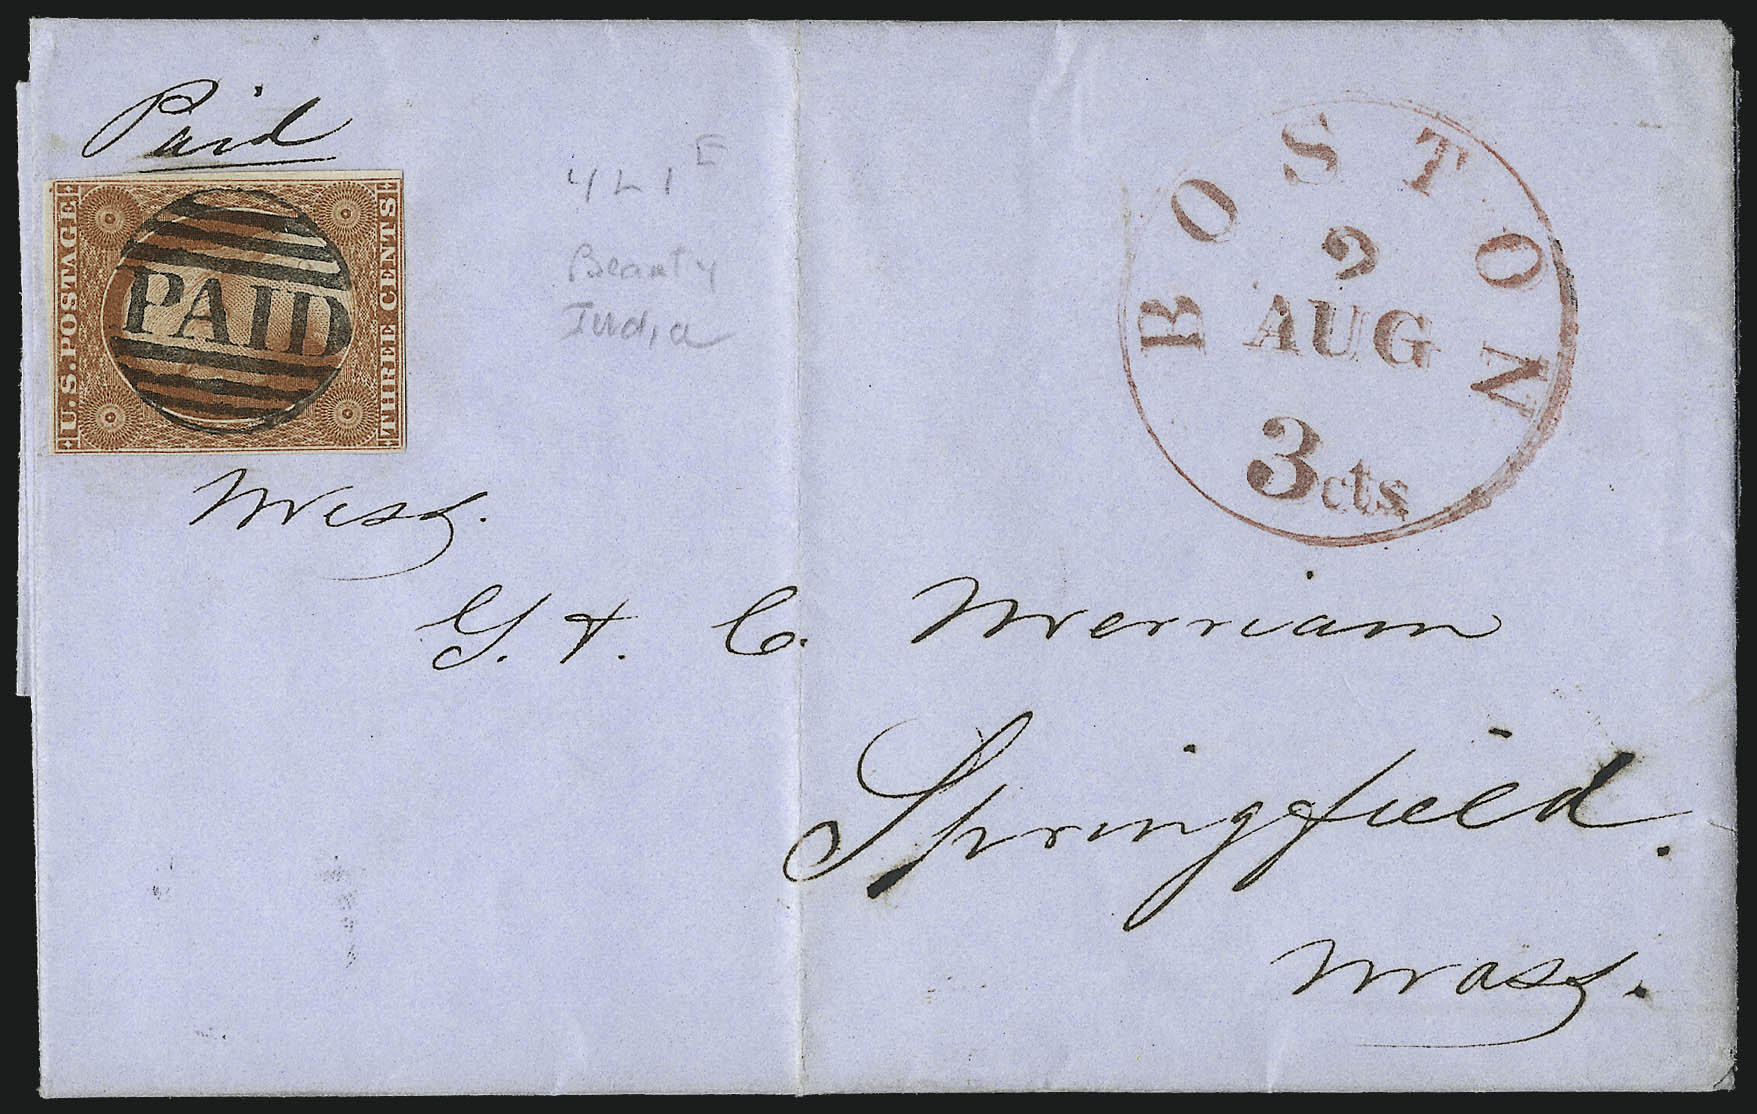 Paid
U.S. POSTAGE
THREE CENTS
PAID
4L1E
Beauty
India
BOSTON
2
AUG
3cts
Mess.
G. & C. Merriam
Springfield.
Mass.